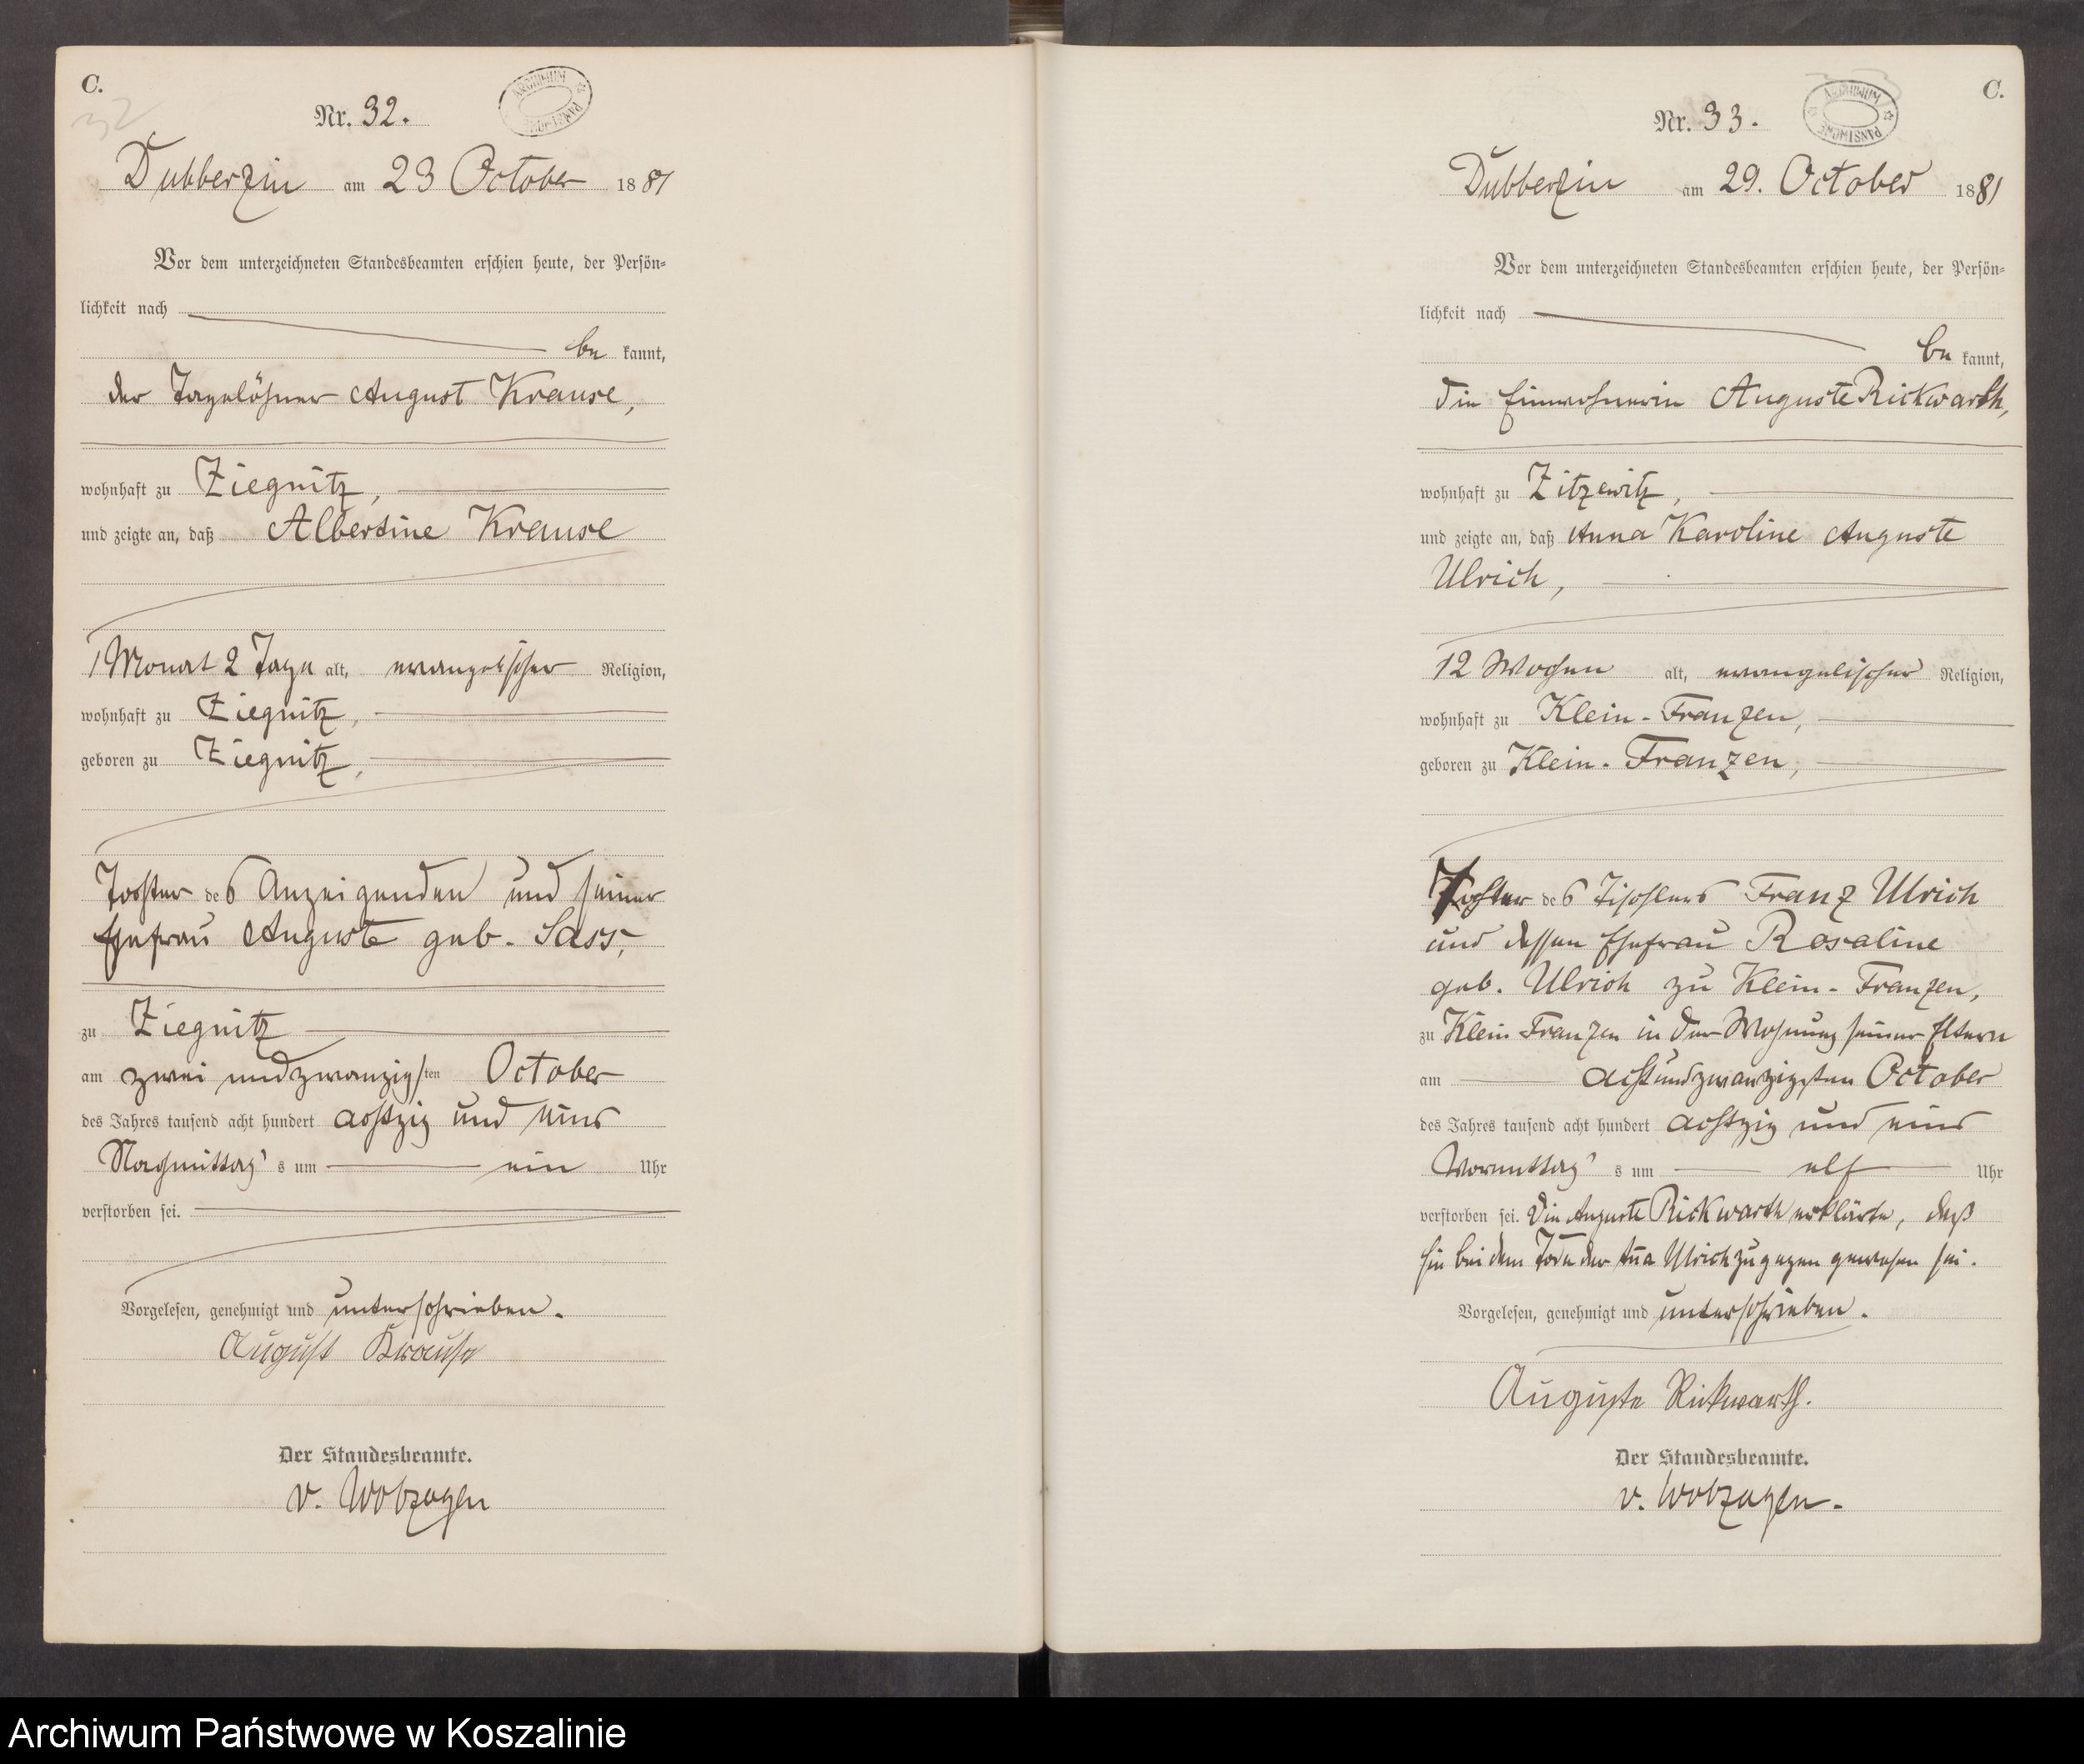 C.
32
Nr. 32.
ARCHIWUM PAŃSTWOWE
Dubberzin am 23 October 1881
Vor dem unterzeichneten Standesbeamten erschien heute, der Persön-
lichkeit nach
be kannt,
der Tagelöhner August Krause,
wohnhaft zu Ziegnitz,
und zeigte an, daß Albertine Krause
1 Monat 2 Tage alt, evangelischer Religion,
wohnhaft zu Ziegnitz,
geboren zu Ziegnitz,
Tochter des Anzeigenden und seiner
Ehefrau Auguste geb. Sass,
zu Ziegnitz
am zwei und zwanzigsten October
des Jahres tausend acht hundert achtzig und eins
Nachmittag's um ein Uhr
verstorben sei.
Vorgelesen, genehmigt und unterschrieben.
August Krause
Der Standesbeamte.
v. Wobzogen
C.
Nr. 33.
ARCHIWUM PAŃSTWOWE
Dubberzin am 29. October 1881
Vor dem unterzeichneten Standesbeamten erschien heute, der Persön-
lichkeit nach
be kannt,
die Einwohnerin Auguste Rickwarth,
wohnhaft zu Zitzewitz,
und zeigte an, daß Anna Karoline Auguste
Ulrich,
12 Wochen alt, evangelischer Religion,
wohnhaft zu Klein-Franzen,
geboren zu Klein-Franzen,
Tochter des Tischlers Franz Ulrich
und dessen Ehefrau Rosaline
geb. Ulrich zu Klein-Franzen,
zu Klein Franzen in der Wohnung seiner Eltern
am achtundzwanzigsten October
des Jahres tausend acht hundert achtzig und eins
Vormittag's um elf Uhr
verstorben sei. Die Auguste Rickwarth erklärte, daß
sie bei dem Tode der Ana Ulrich zugegen gewesen sei.
Vorgelesen, genehmigt und unterschrieben.
Auguste Rickwarth.
Der Standesbeamte.
v. Wobzogen.
Archiwum Państwowe w Koszalinie